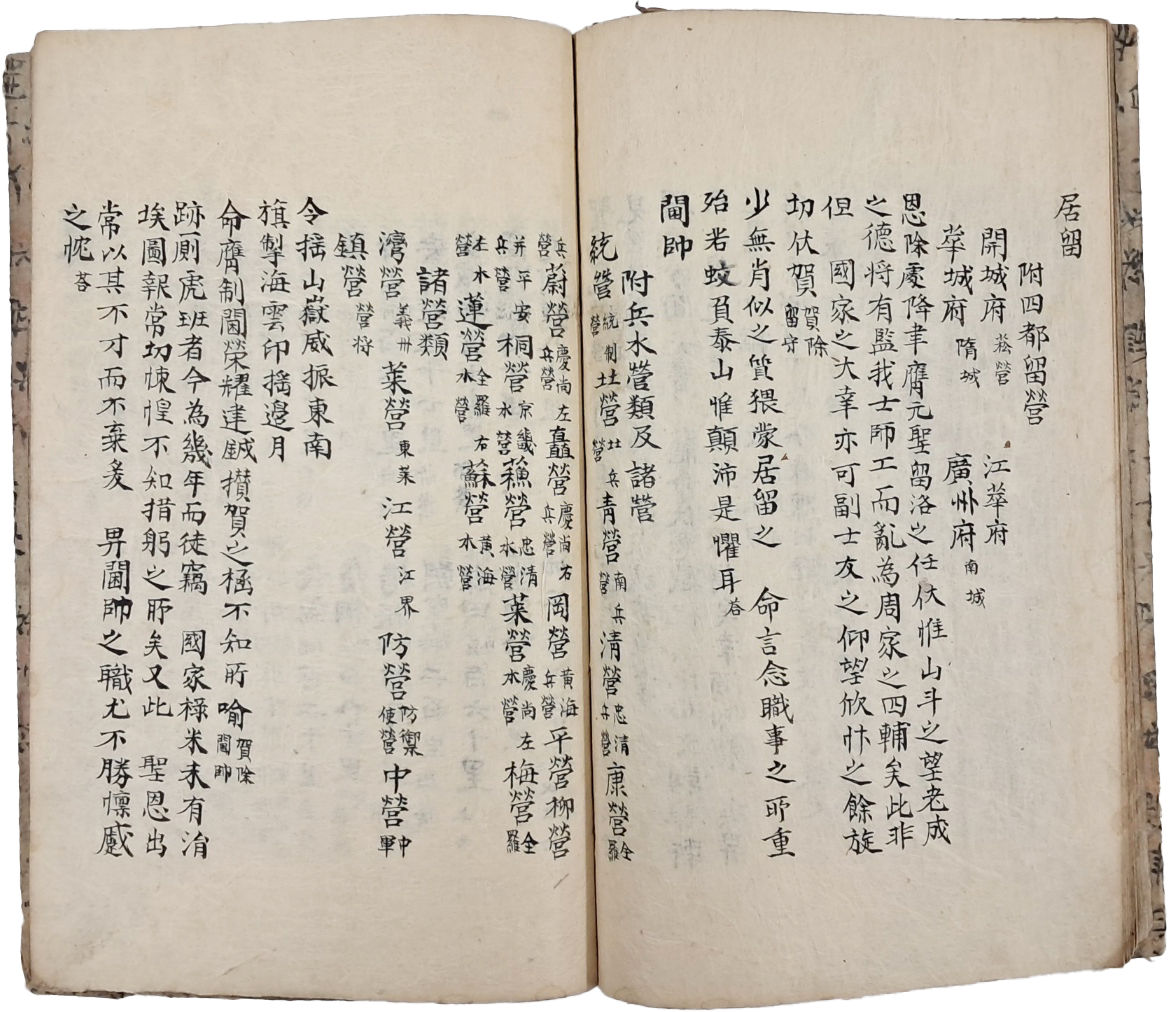 居留
附四都留營
開城府 崧營 江華府
華城府 隋城 廣州府 南城
恩除處降聿膺元聖留洛之任伏惟山斗之望老成
之德將有監我士師工而亂為周家之四輔矣此非
但 國家之大幸亦可副士友之仰望欣忭之餘旋
切伏賀 賀除留守
少無肖似之質猥蒙居留之 命言念職事之所重
殆若蚊負泰山惟顛沛是懼耳 答
閫帥
附兵水營類及諸營
統營 統制營 北營 北兵營 青營 南兵營 清營 忠清兵營 康營 全羅
兵營 蔚營 慶尚左兵營 矗營 慶尚右兵營 岡營 黃海兵營 平營柳營
并平安兵營 桐營 京畿水營 蘓營 忠清水營 萊營 慶尚左水營 梅營 全羅
左水營 蓮營 全羅右水營 蘇營 黃海水營
諸營類
灣營 義州 萊營 東萊 江營 江界 防營 防禦使營 中營 中軍
鎮營 營將
令搖山嶽威振東南
旗掣海雲印搖邊月
命膺制閫榮耀建鉞攢賀之極不知所喻 賀除閫帥
跡厠虎班者今為幾年而徒竊 國家祿米未有涓
埃圖報常切悚惶不知措躬之所矣又此 聖恩出
常以其不才而不棄爰 畀閫帥之職尤不勝懍蹙
之忱 答